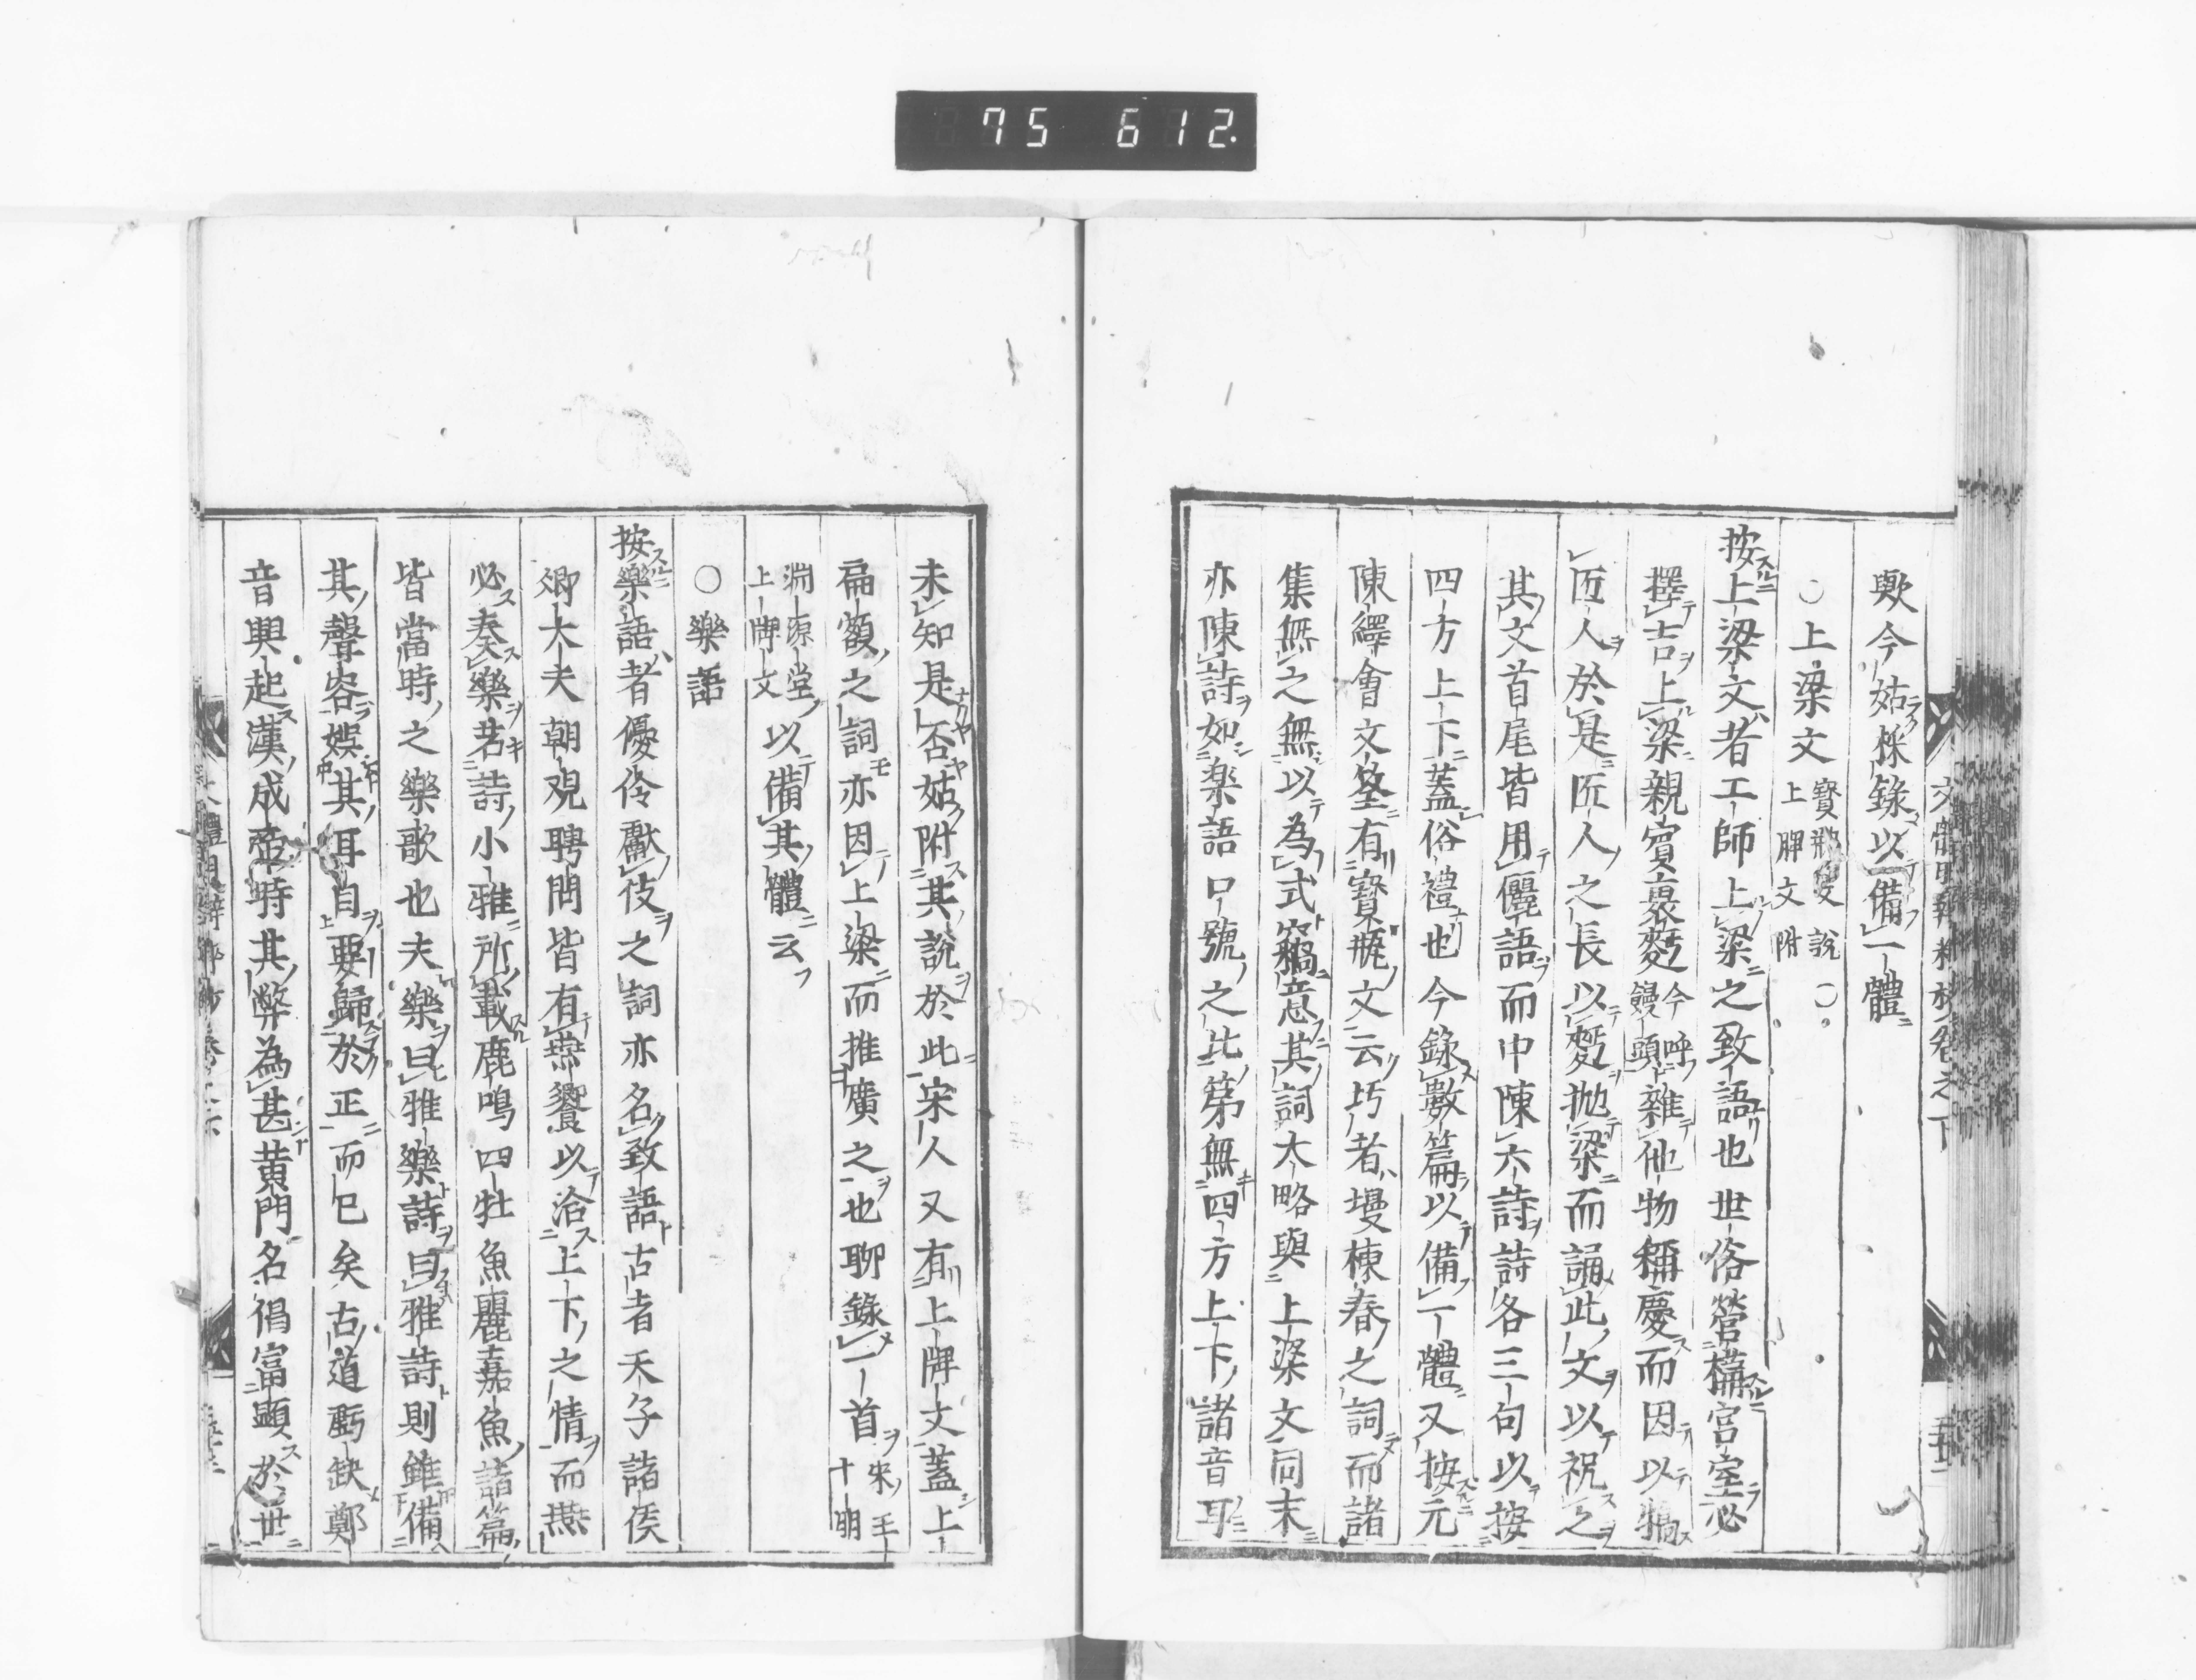 75 612.
歟今姑採錄以備一體
○上梁文 寳瓶文說
上牌文附
按上梁文者工師上梁之致語也世俗營構宮室必
擇吉上梁親賓裹麪今呼饅頭雜他物稱慶而因以犒
匠人於是匠人之長以麪拋梁而誦此文以祝之
其文首尾皆用儷語而中陳六詩詩各三句以按
四方上下蓋俗禮也今錄數篇以備一體又按元
陳繹會文筌有寳瓶文云圬者墁棟脊之詞而諸
集無之無以為式竊意其詞大略與上梁文同末
亦陳詩如樂語口號之比第無四方上下諸音耳
未知是否姑附其說於此宋人又有上牌文蓋上
扁額之詞亦因上梁而推廣之也聊錄一首宋王十朋
淵源堂上牌文以備其體云
○樂語
按樂語者優伶獻伎之詞亦名致語古者天子諸侯
卿大夫朝覲聘問皆有燕饗以洽上下之情而燕
必奏樂若詩小雅所載鹿鳴四牡魚麗嘉魚諸篇
皆當時之樂歌也夫樂曰雅樂詩曰雅詩則雖備
其聲容娛其耳目要歸於正而已矣古道虧缺鄭
音興起漢成帝時其弊為甚黃門名倡富顯於世